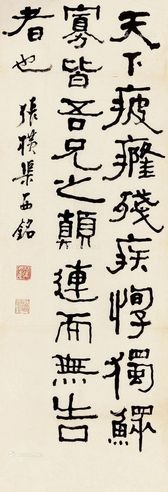 天下疲癃殘疾惸獨鰥
寡皆吾兄之顛連而無告
者也
張橫渠西銘